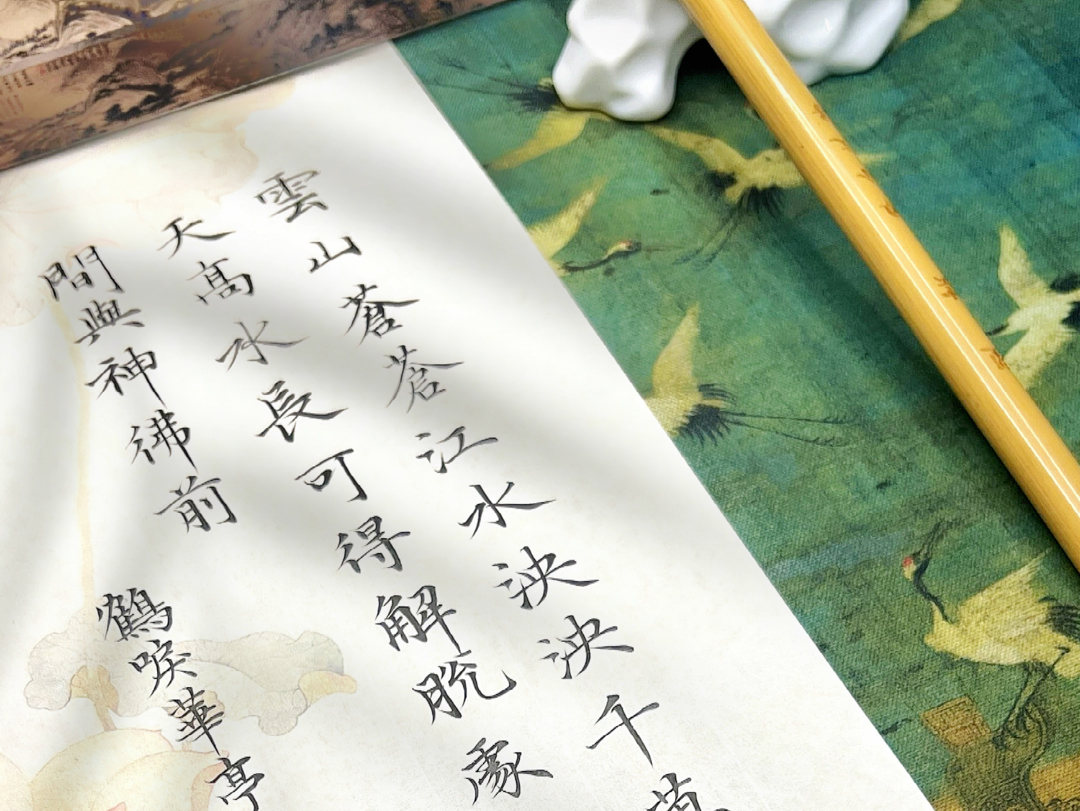 雲山蒼蒼江水泱泱千
天高水長可得解脫處
間與神彿前
鶴唳華亭